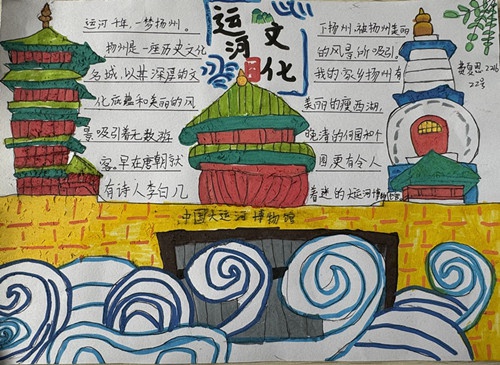 运河文化
运河千年,一梦扬州。
扬州是一座历史文化
名城,以其深厚的文
化底蕴和美丽的风
景吸引着无数游
客。早在唐朝就
有诗人李白几
下扬州,被扬州美丽
的风景所吸引。
我的家乡扬州有
美丽的瘦西湖,
晚清的何园和个
园更有令人
着迷的大运河博物馆
22号
中国大运河博物馆